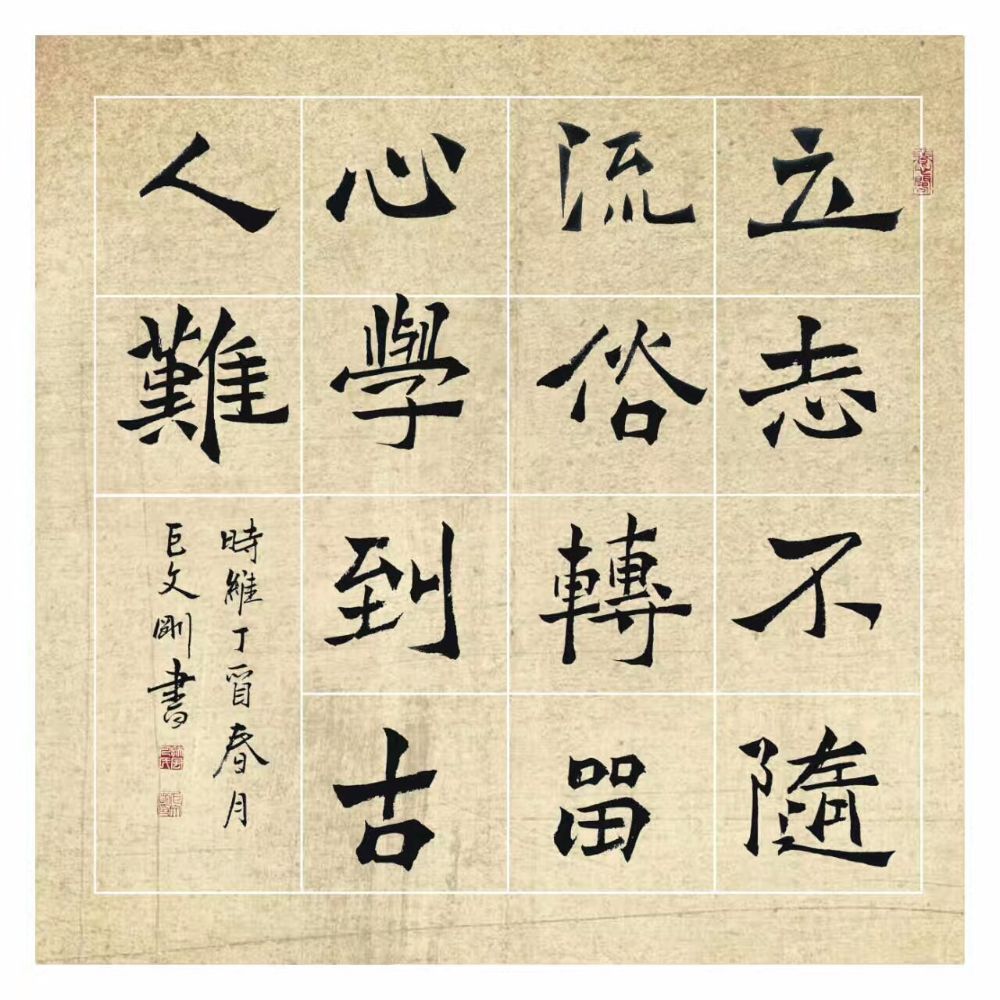 立志不隨
流俗轉留
心學到古
人難
時維丁酉春月
巨文剛書